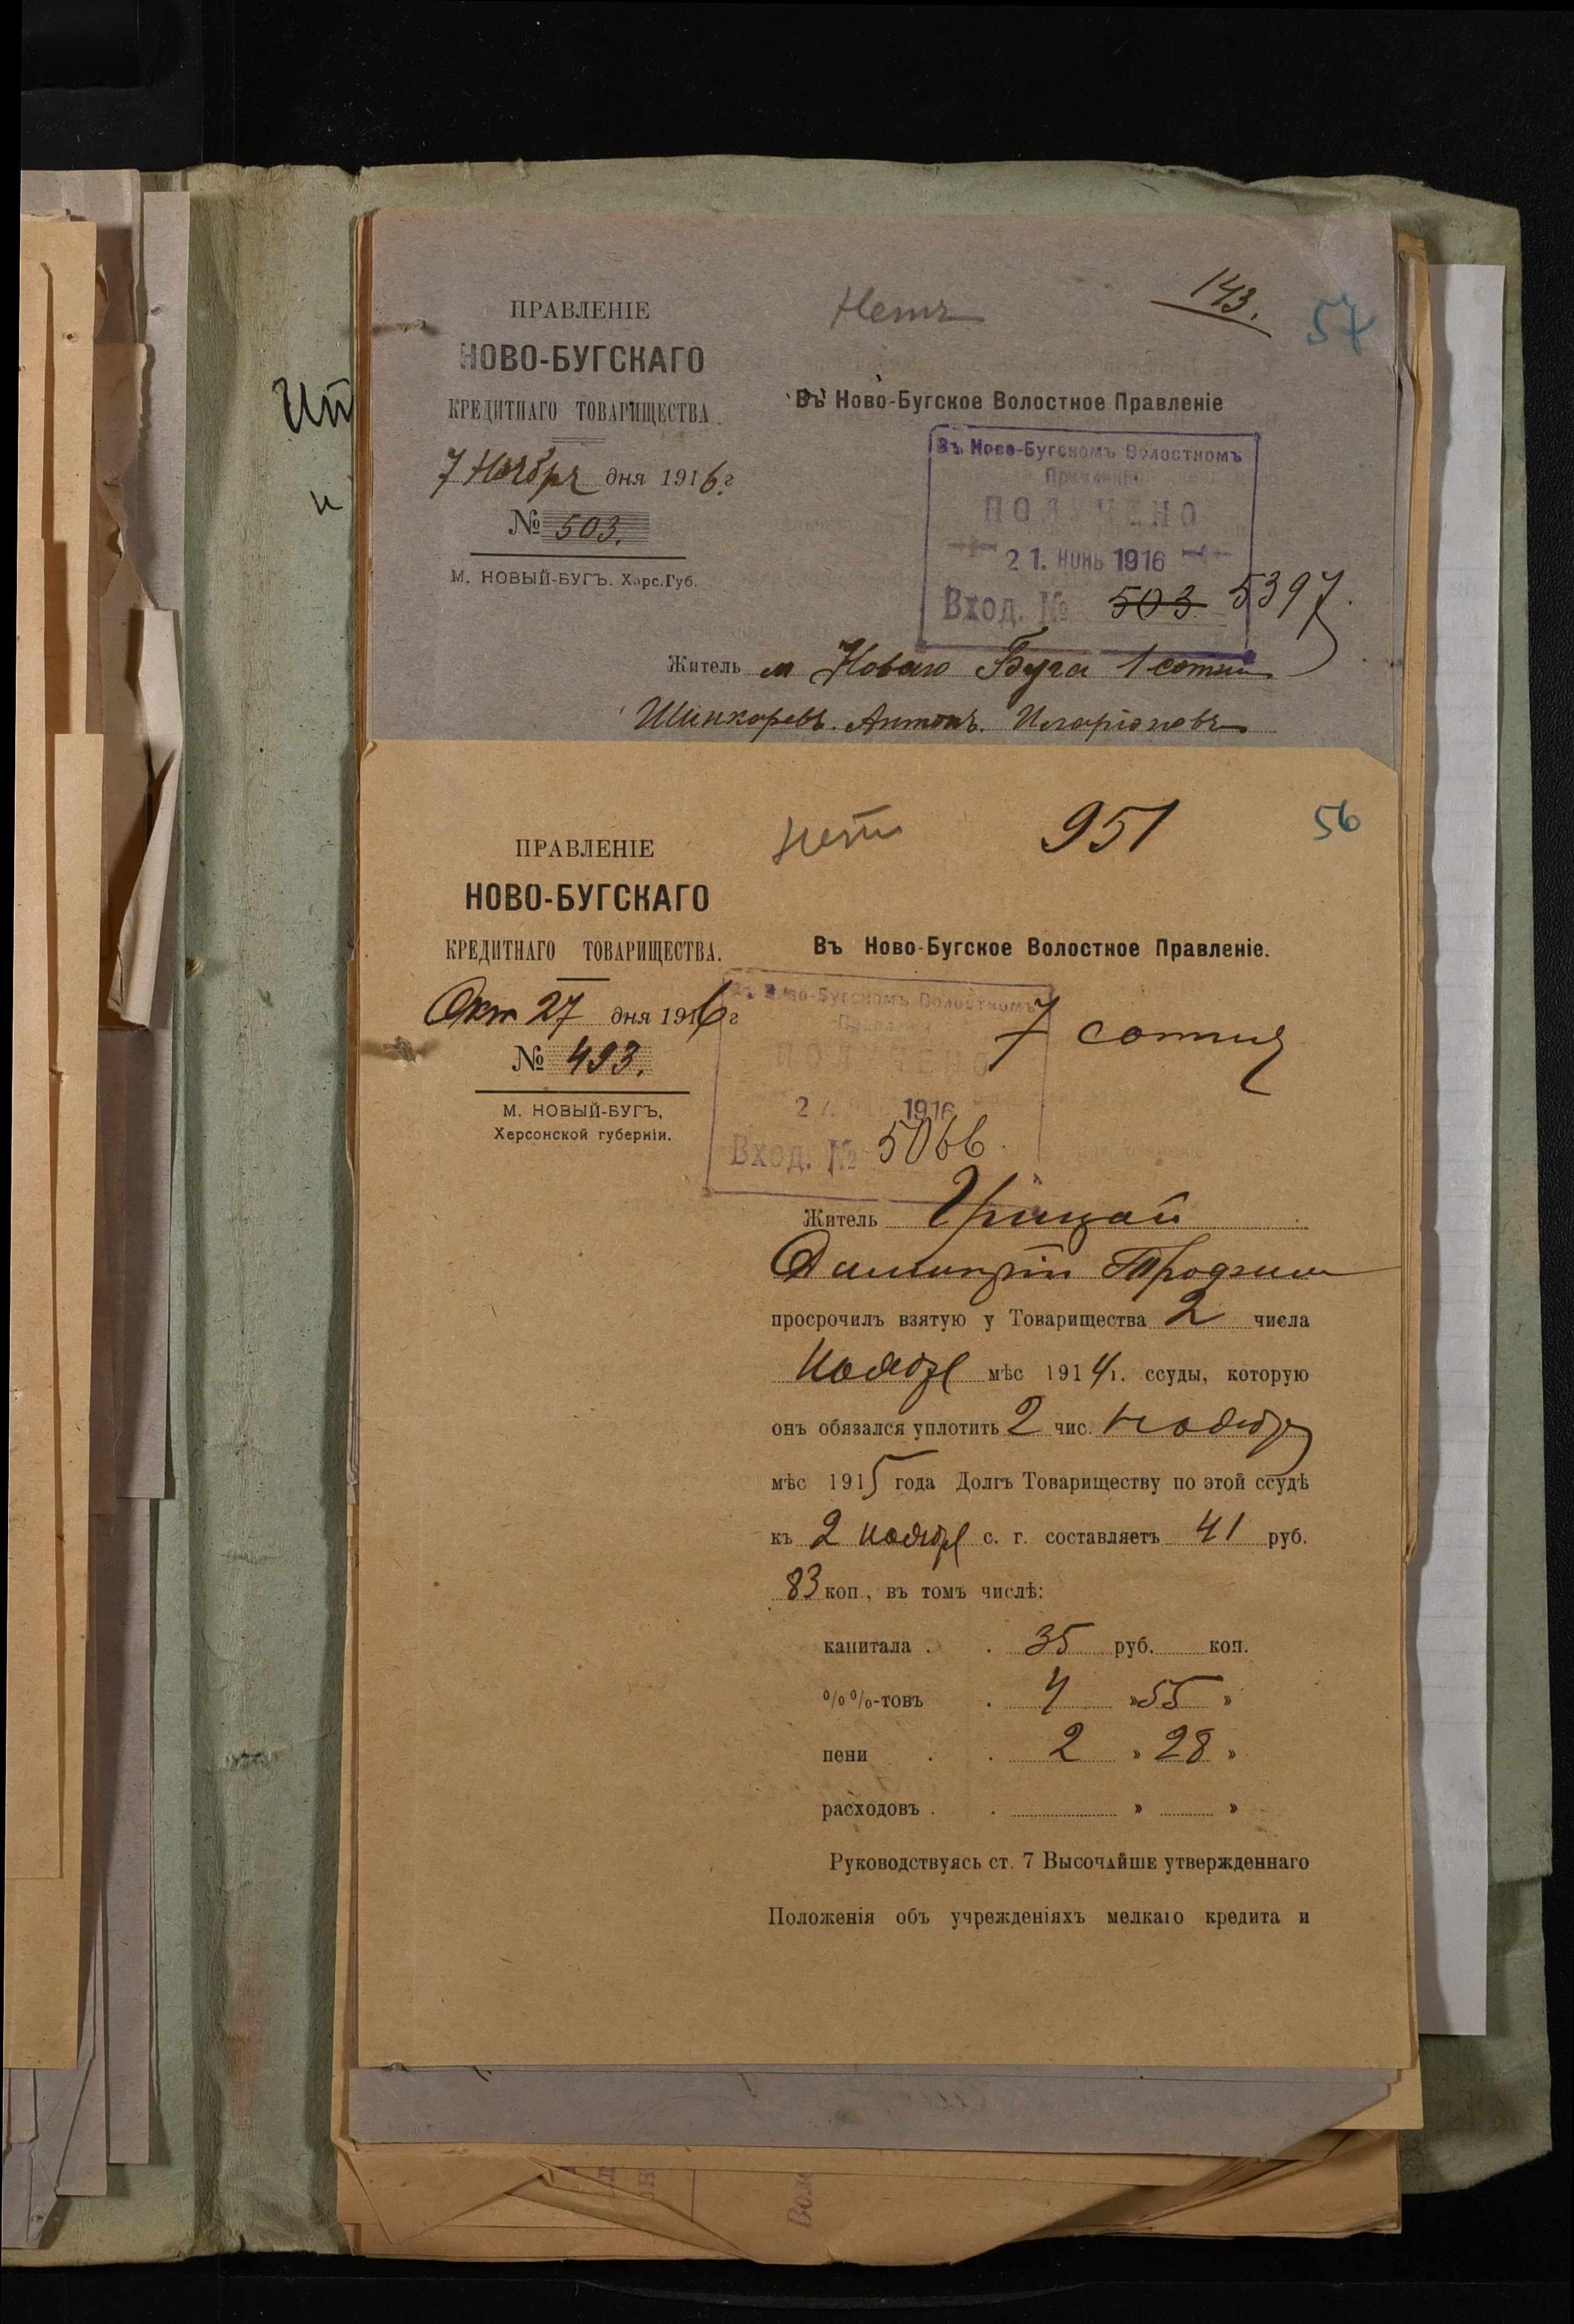 Нетъ
143.
57
ПРАВЛЕНІЕ
НОВО-БУГСКАГО
КРЕДИТНАГО ТОВАРИЩЕСТВА.
7 Ноября дня 1916 г
№ 503.
М. НОВЫЙ-БУГЪ. Харс. Губ.
Въ Ново-Бугское Волостное Правленіе
Въ Ново-Бугскомъ Волостномъ
Правленіи
ПОЛУЧЕНО
21. НОЯБ 1916
Вход. № 503 5397.
Житель м Новаго Буга 1 сотни
Шинкаревъ. Антонъ. Иларіоновъ
нетъ
951
56
ПРАВЛЕНІЕ
НОВО-БУГСКАГО
КРЕДИТНАГО ТОВАРИЩЕСТВА.
Окт 27 дня 1916 г
№ 493.
М. НОВЫЙ-БУГЪ,
Херсонской губерніи.
Въ Ново-Бугское Волостное Правленіе.
Въ Ново-Бугскомъ Волостномъ
ПОЛУЧЕНО
1916
Вход. № 5066.
7 сотня
Житель Грицай
просрочилъ взятую у Товарищества 2 числа
ноября мѣс 1914 г. ссуды, которую
онъ обязался уплотить 2 чис. ноября
мѣс 1915 года Долгъ Товариществу по этой ссудѣ
къ 2 ноября с. г. составляетъ 41 руб.
83 коп., въ томъ числѣ:
капитала . . 35 руб. коп.
%%-товъ . 4 » 55 »
пени . . 2 » 28 »
расходовъ . . » »
Руководствуясь ст. 7 Высочайше утвержденнаго
Положенія объ учрежденіяхъ мелкаго кредита и